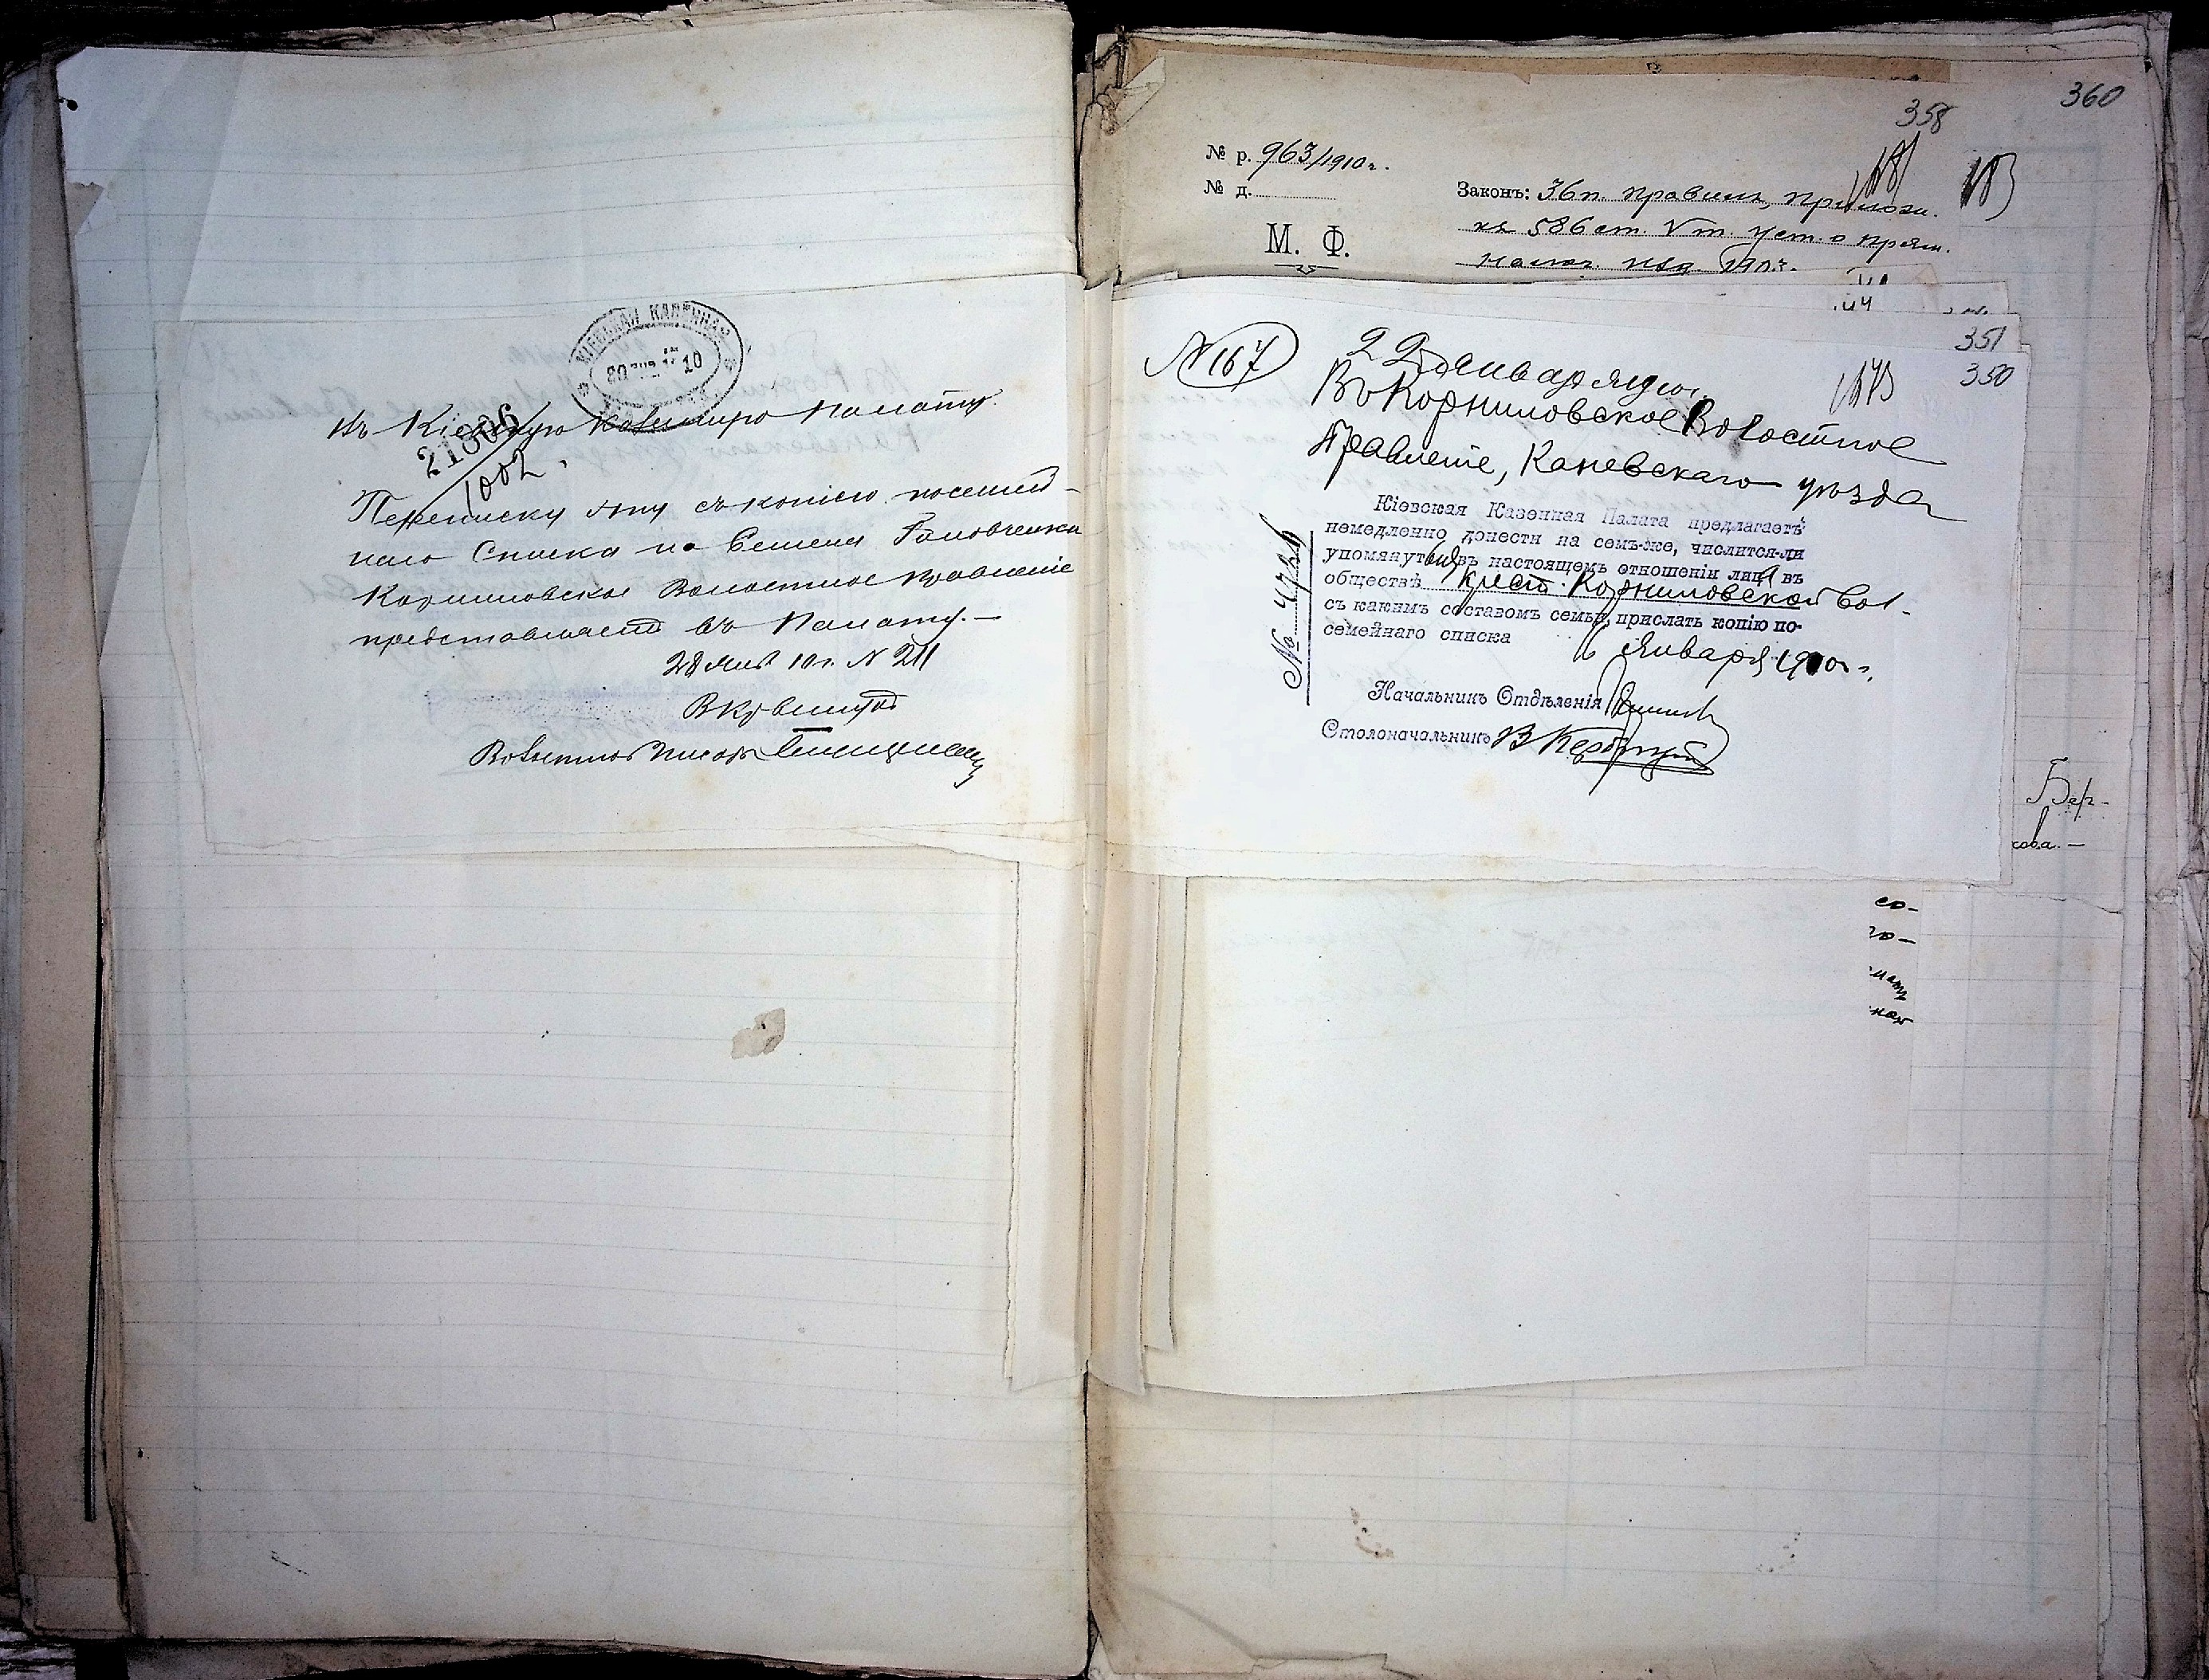 КІЕВСКАЯ КАЗЕННАЯ
10
Въ Кіевскую Казенную Палату
21806
1002
Переписку эту съ копіею посемей-
наго Списка на Семена Головченка
Корниловское Волостное Правленіе
представляетъ въ Палату. —
28 Янв 10 г. N 211
Волостной Писарь
360
358
№ р. 963/1910 г.
№ д.
183
Законъ: 36 п. правилъ, прилож.
къ 586 ст. V т. уст. о прям.
налог. изд.
М. Ф.
351
350
N 167
22 Января 910 г.
Въ Корниловское Волостное
Правленіе, Каневскаго уѣзда
Кіевская Казенная Палата предлагаетъ
немедленно донести на семъ-же, числится-ли
упомянутый въ настоящемъ отношеніи лица въ
обществѣ крест. Корниловской вол.
съ какимъ составомъ семьи, прислать копію по-
семейнаго списка
16 Января 1910 г.
№ 4726
Начальникъ Отдѣленія
Столоначальникъ В
Бер-
сова. —
со-
го-